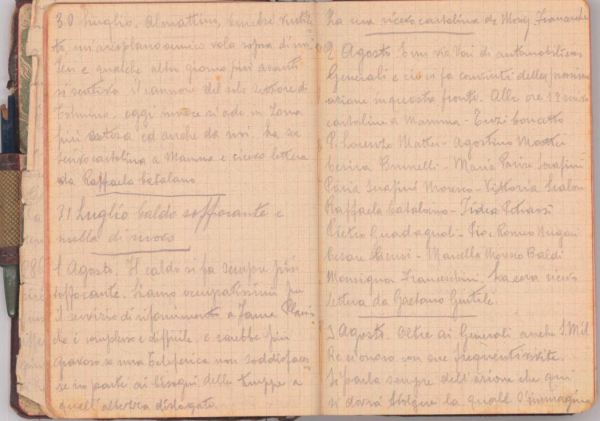 30 Luglio. Al mattino,
un aeroplano nemico vola sopra di noi
Ieri e qualche altro giorno più avanti
si sentiva il cannone del solo settore di
Tolmino, oggi invece si ode in zona
più estesa ed anche da noi. La sera
scrivo cartolina a Mamma e ricevo lettera
da Raffaele Catalano
31 Luglio Caldo soffocante e
nulla di nuovo
1 Agosto. Il caldo si fa sempre più
soffocante. Siamo occupatissimi per
il servizio di rifornimento a
che è complesso e difficile, e sarebbe più
gravoso se una teleferica non soddisfaces
se in parte ai bisogni delle truppe a
quell'altezza dislocate.
La sera ricevo cartolina da
2 Agosto È un via vai di automobili con
Generali e ciò ci fa convinti della prossima
azione in questa fronte. Alle ore 18 scrivo
cartoline a Mamma - Enzi
P. Lorenzo Mattei - Agostino Mattei
Brunelli - Maria Serafini
Serafini Moreno - Vittoria
Raffaele Catalano -
Pietro - Pio Romeo
Cesare - Marcella Baldi
Monsignor Franceschini. La sera ricevo
lettera da Gaetano Gentile.
3 Agosto. Oltre ai Generali anche S. M. il
Re ci onora con sue frequenti visite.
Si parla sempre dell'azione che qui
si dovrà svolgere la quale s'immagina